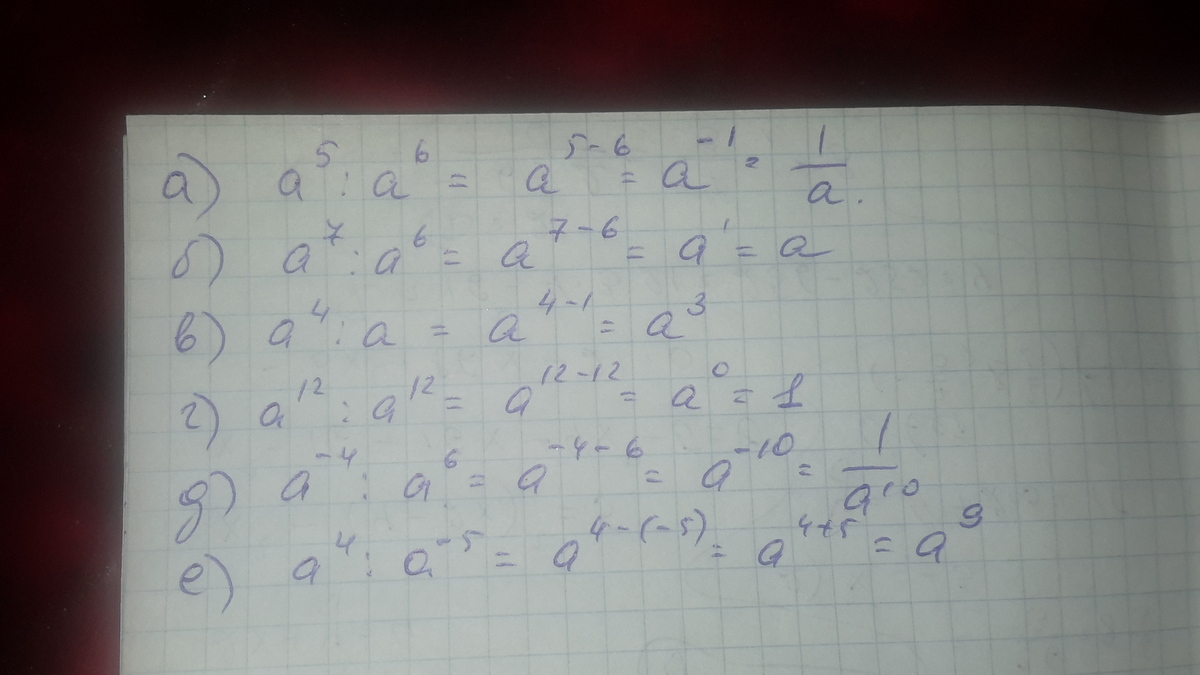 а) a⁵ : a⁶ = a⁵⁻⁶ = a⁻¹ = 1/a.
б) a⁷ : a⁶ = a⁷⁻⁶ = a¹ = a
в) a⁴ : a = a⁴⁻¹ = a³
г) a¹² : a¹² = a¹²⁻¹² = a⁰ = 1
д) a⁻⁴ : a⁶ = a⁻⁴⁻⁶ = a⁻¹⁰ = 1/a¹⁰
е) a⁴ : a⁻⁵ = a⁴⁻⁽⁻⁵⁾ = a⁴⁺⁵ = a⁹